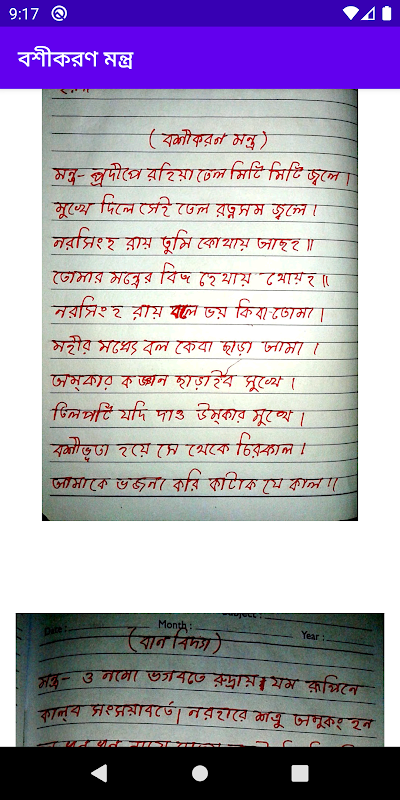 9:17
বশীকরণ মন্ত্র
(বশীকরন মন্ত্র)
মন্ত্র- প্রদীপে রহিয়া তেল মিটি মিটি জ্বলে।
মুখে দিলে সেই তেল রত্নসম জ্বলে।
নরসিংহ রায় তুমি কোথায় আছহ॥
তোমার মন্ত্রের বিজ হেথায় থোয়হ॥
নরসিংহ রায় বলে ভয় কিবা তোমা।
মহীর মধ্যে বল কেবা ছাড়া আমা।
অমুকার ছাড়াইব সুখে।
তিলপটি যদি দাও উমুকার মুখে।
বশীভূতা হয়ে সে থেকে চিরকাল।
আমাকে ভজনা করি কাটাক যে কাল॥
Date: Month: Year:
(বান বিদ্যা)
মন্ত্র- ওঁ নমো ভগবতে রুদ্রায় যম রূপিনে
কালব সংসয়াবর্তে। নরহারে শত্রু অমুকং হন